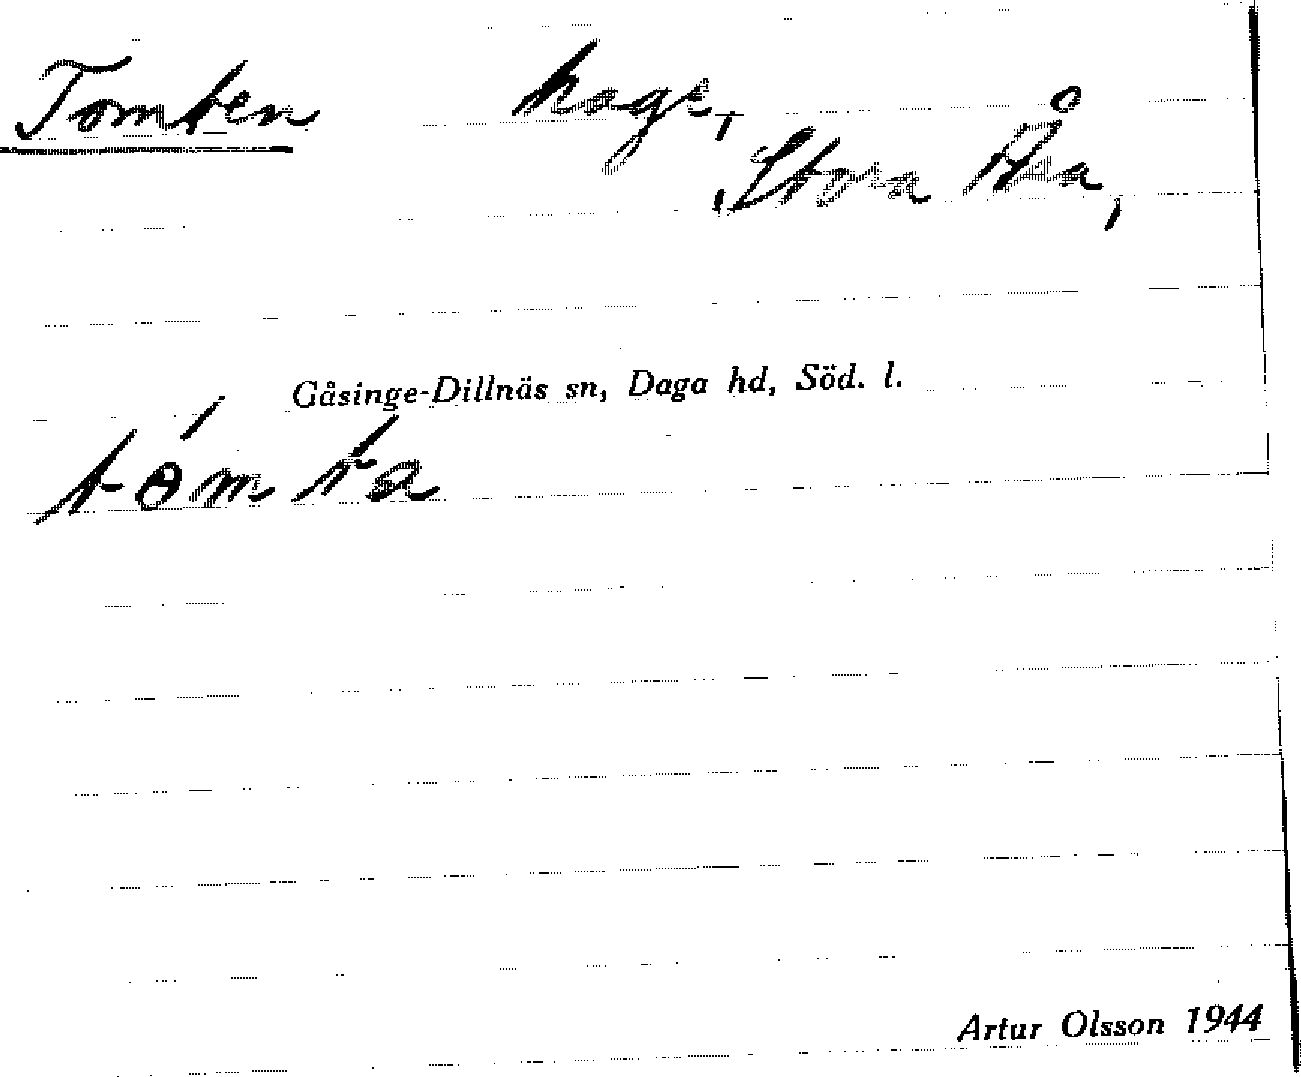 Tomten hage,
Stora Åa,
Gåsinge-Dillnäs sn, Daga hd, Söd. l.
Artur Olsson 1944